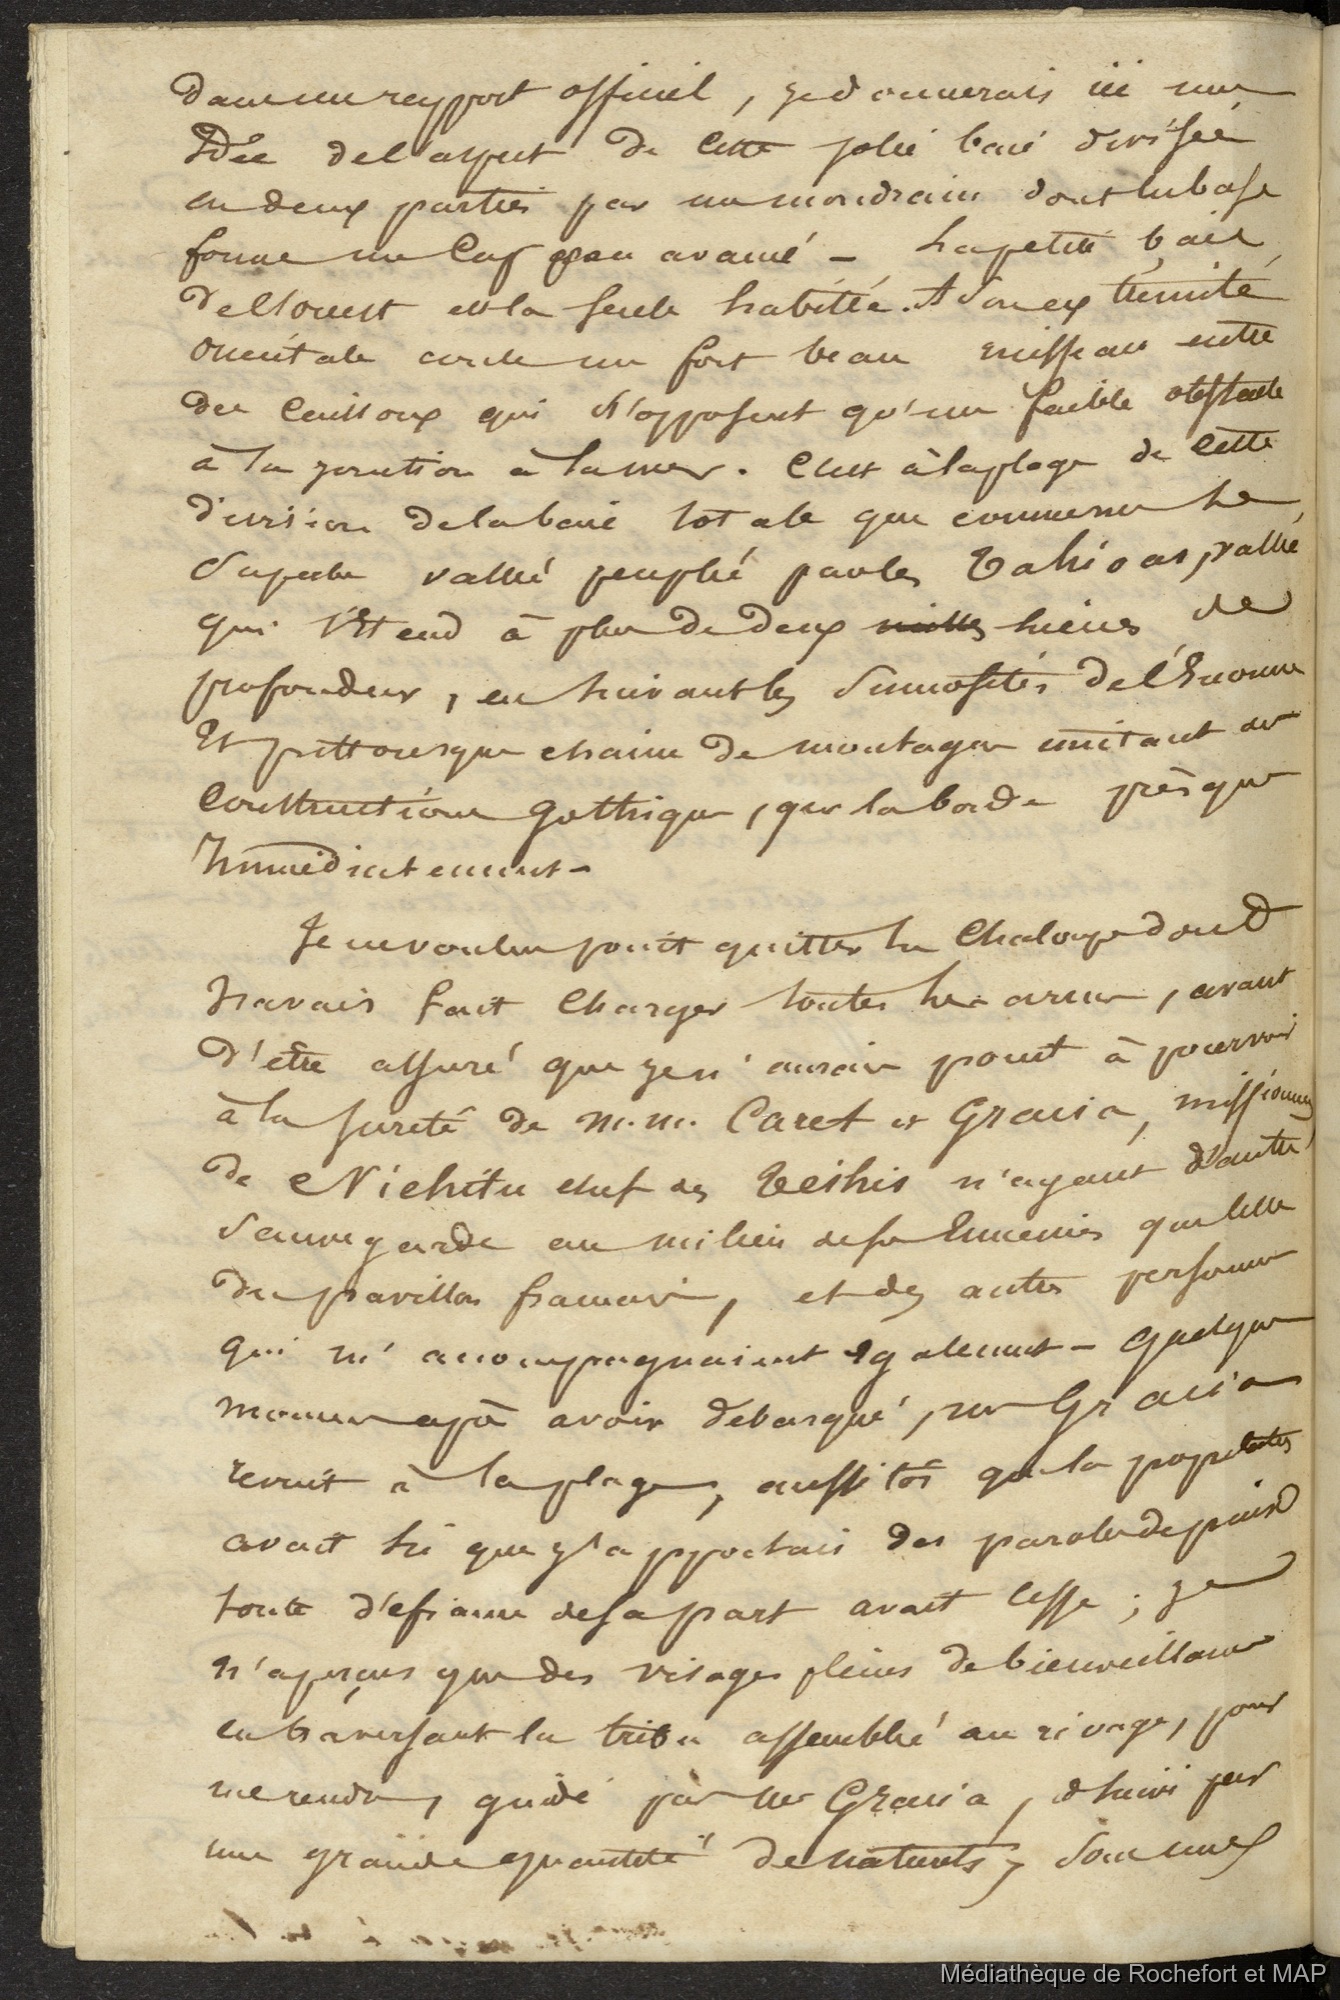 dans un rapport officiel, je donnerais ici une
Idée de l'aspect de cette jolie baie divisée
en deux parties par un mondrain dont la base
forme un Cap peu avancé - La petite baie
de l'ouest est la seule habitée. A son extrémité
orientale coule un fort beau ruisseau entre
des cailloux qui n'opposent qu'un faible obstacle
à la jonction à la mer. C'est à la plage de cette
division de la baie totale que commence la
superbe vallée peuplée par les Tahioas, vallée
qui s'étend à plus de deux milles lieues de
profondeur, en suivant les sinuosités de l'Enorme
Et pittoresque chaine de montagnes imitant des
Constructions gothiques, qui la borde présque
Immédiatement -
Je ne voulus point quitter la Chaloupe dont
J'avais fait Charger toutes les armes, avant
d'être assuré que je n'aurais point à pourvoir
à la sureté de M.M. Caret et Gracia, missionnes
de Nichitu chef des Teihis n'ayant d'autre
sauvegarde au milieu de ses Ennemies que celle
du pavillon francais, et des autres personnes
qui m'accompagnaient Egalement - quelques
momens après avoir débarqué, mr Gracia
revint à la plage, aussitôt que la population
avait su que j'apportais des paroles de paix
toute défiance de sa part avait cessé; je
n'aperçus que des visages pleins de bienveillance
en traversant la tribu assemblée au rivage, pour
me rendre, guidé par Mr Gracia, et suivi par
une grande quantité de naturels, sous une
Médiathèque de Rochefort et MAP